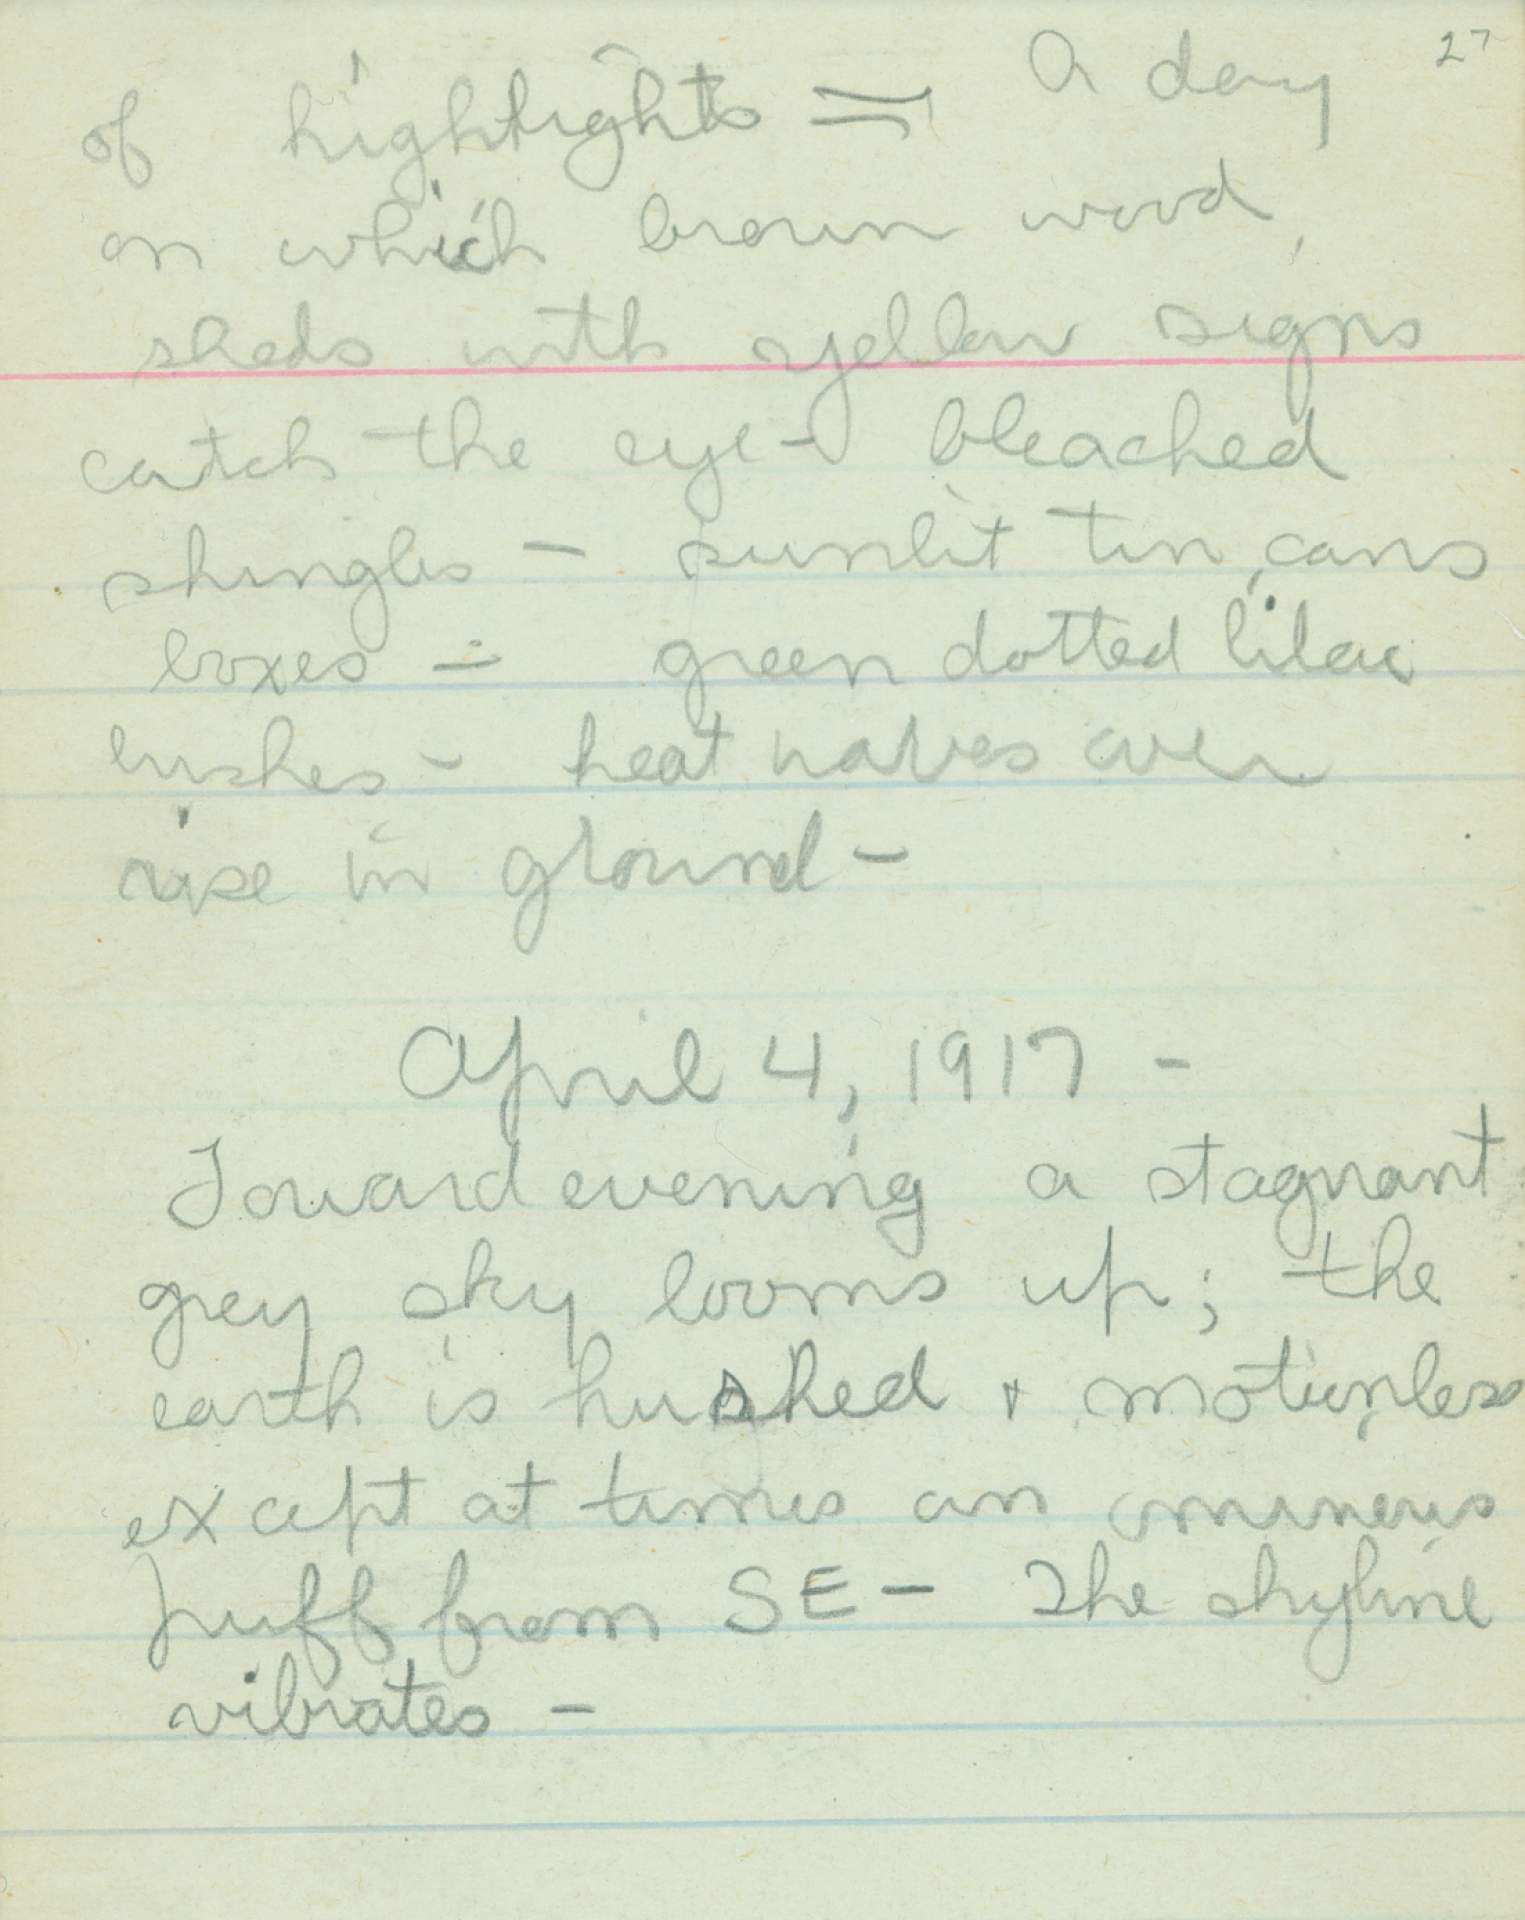 27
of highlights — A day
on which brown wood,
sheds with yellow signs
catch the eye — bleached
shingles — sunlit tin cans,
boxes — green dotted lilac
bushes — heat waves over
rise in ground —
April 4, 1917 —
Toward evening a stagnant
grey sky looms up; the
earth is hushed + motionless
except at times an ominous
puff from SE — The skyline
vibrates —